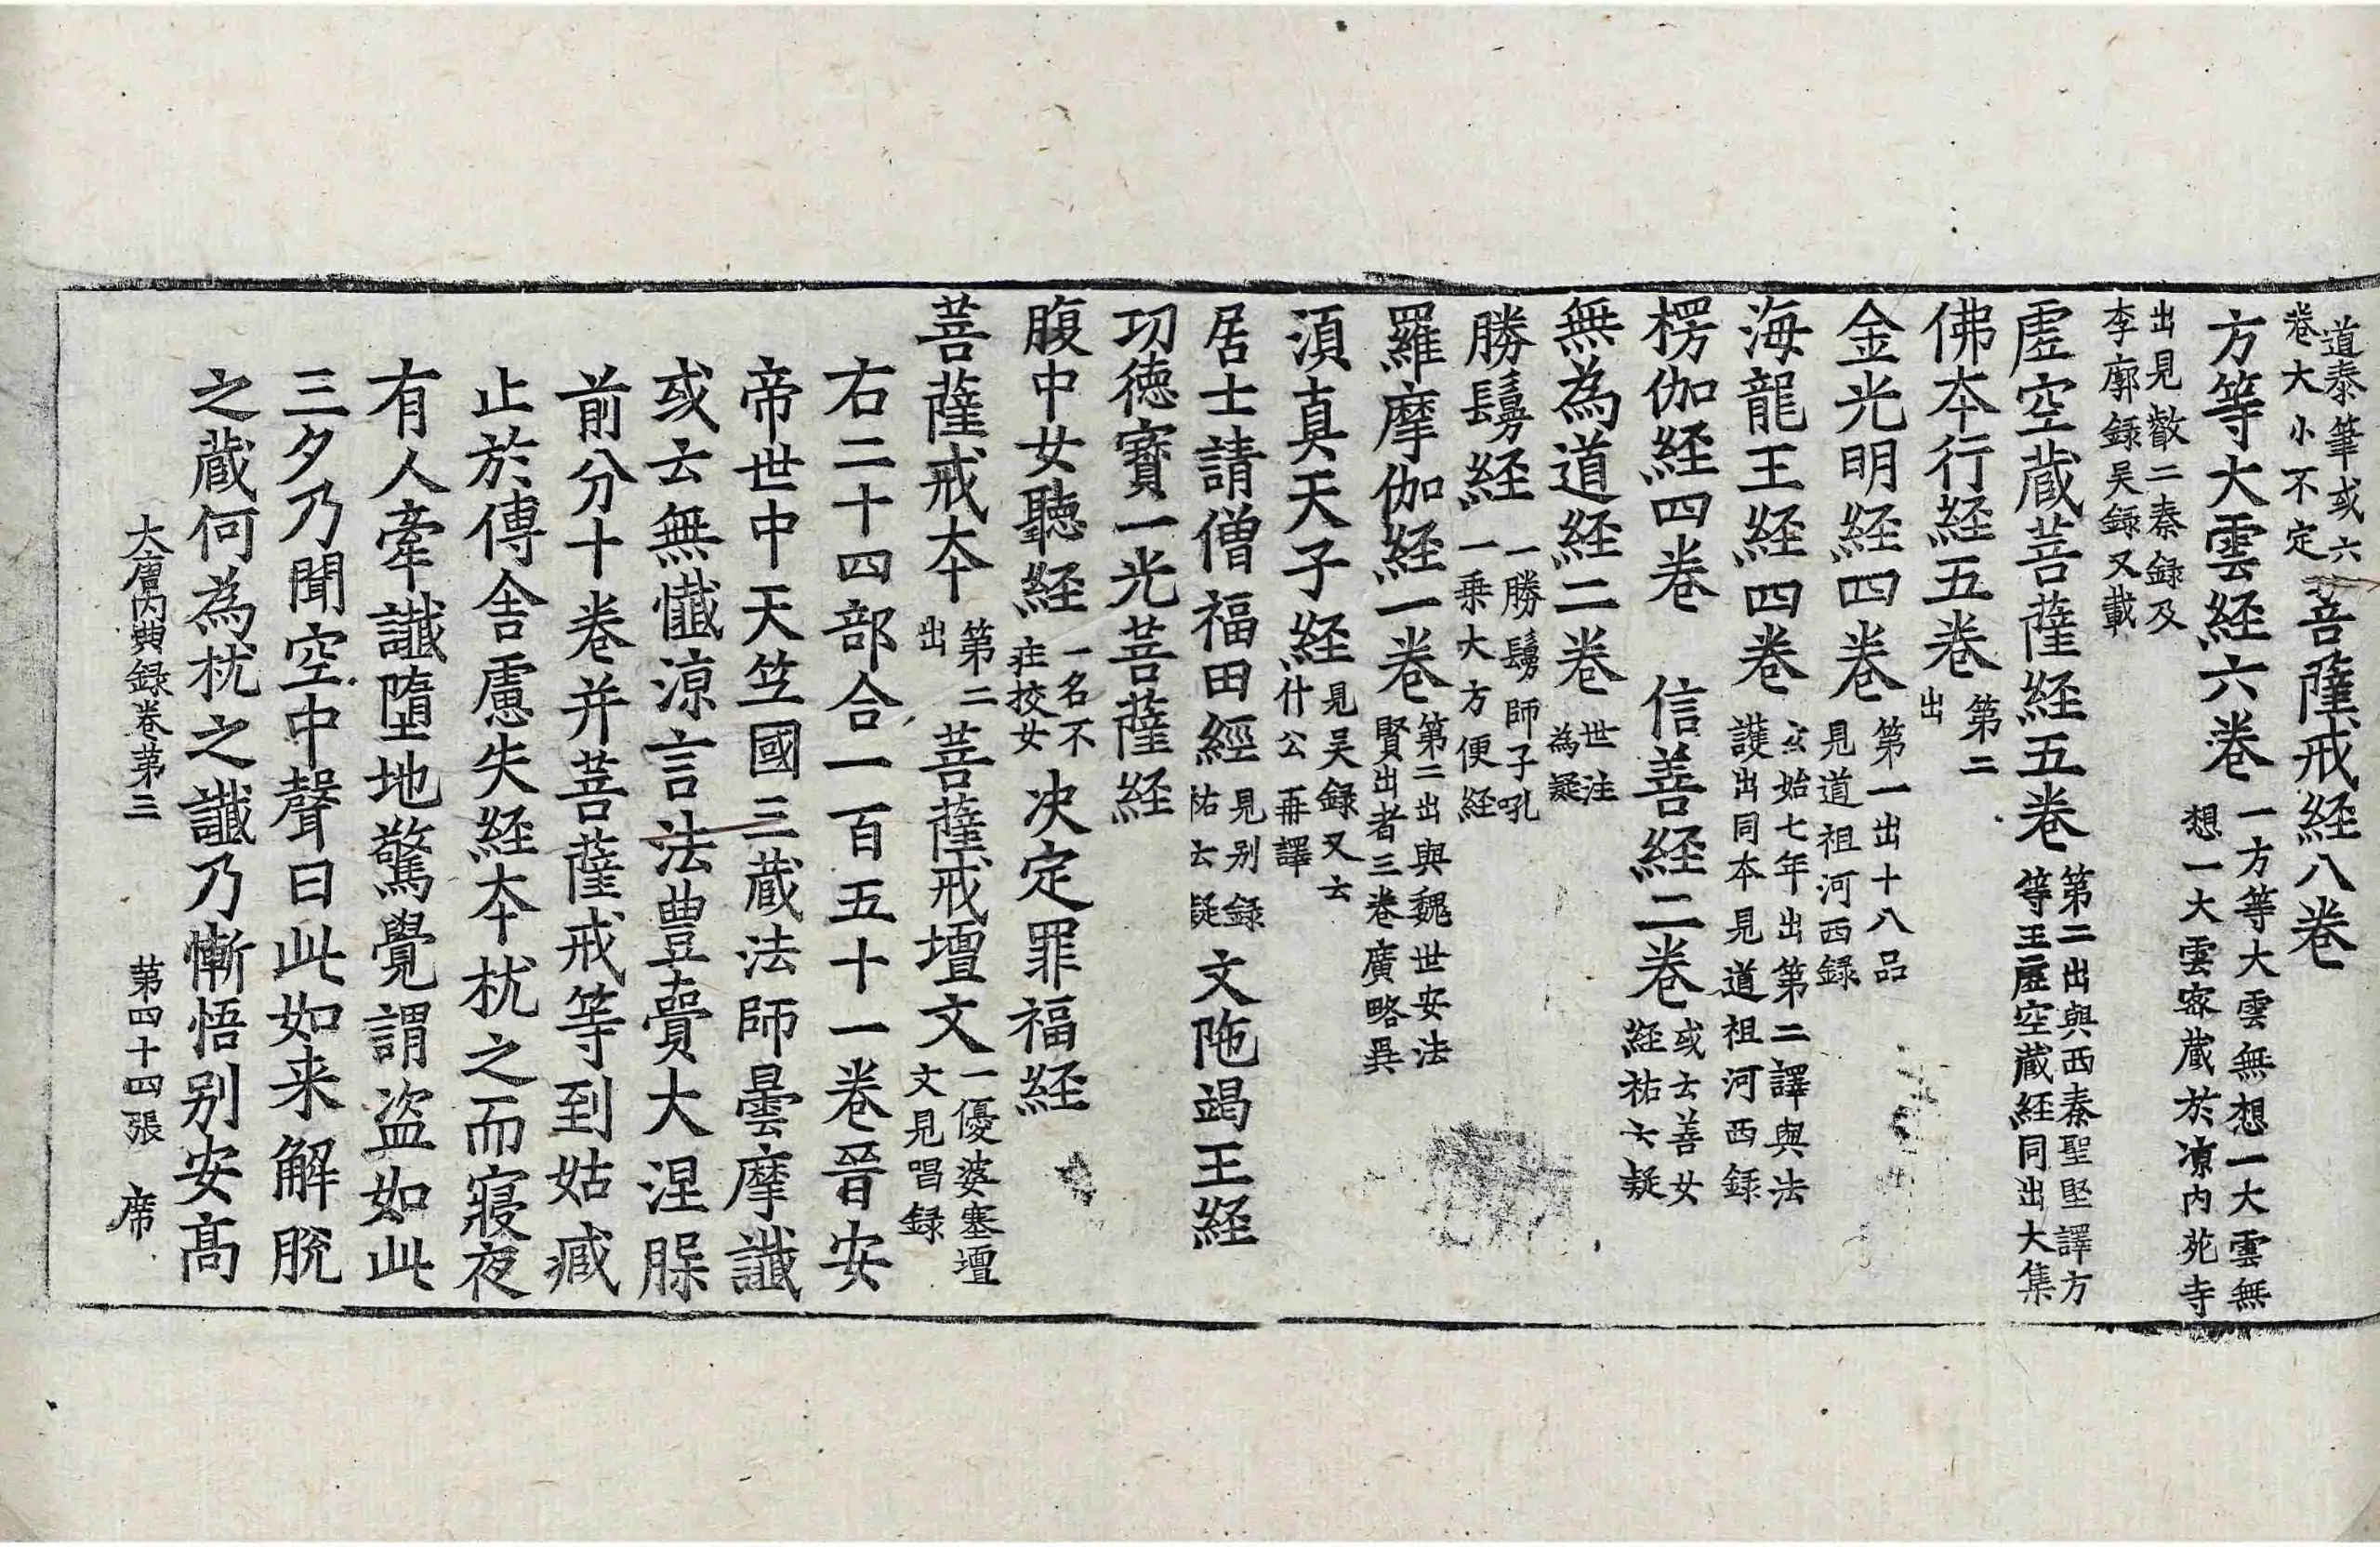 道泰筆或六卷大小不定菩薩戒経八卷
方等大雲経六卷一方等大雲無想一大雲無想一大雲密蔵於涼内苑寺
出見叡二秦録及李廓録吴録又載
虗空蔵菩薩経五卷第二出與西秦聖堅譯方等王虗空蔵経同出大集
佛夲行経五卷第二出
金光明経四卷第一出十八品見道祖河西録
海龍王経四卷玄始七年出第二譯與法護出同本見道祖河西録
楞伽経四卷 信善経二卷或云善女経祐云疑
無為道経二卷世注為疑
勝鬘経一勝鬘師子吼一乗大方便経
羅摩伽経一卷第二出與魏世安法賢出者三卷廣略異
湏真天子経見吴録又云什公再譯
居士請僧福田經見别録祐云疑文陁竭王経
功德寶一光菩薩経
腹中女聽経一名不荘挍女决定罪福経
菩薩戒夲第二出菩薩戒壇文一優婆塞壇文見唱録
右二十四部合一百五十一卷晉安
帝世中天竺國三蔵法師曇摩讖
或云無懺涼言法豊賷大涅槃
前分十卷并菩薩戒等到姑臧
止於傳舎慮失経夲枕之而寢夜
有人牽讖墮地驚覺謂盗如此
三夕乃聞空中聲曰此如来解脱
之蔵何為枕之讖乃慚悟别安髙
大唐内典録卷第三 第四十四張 席